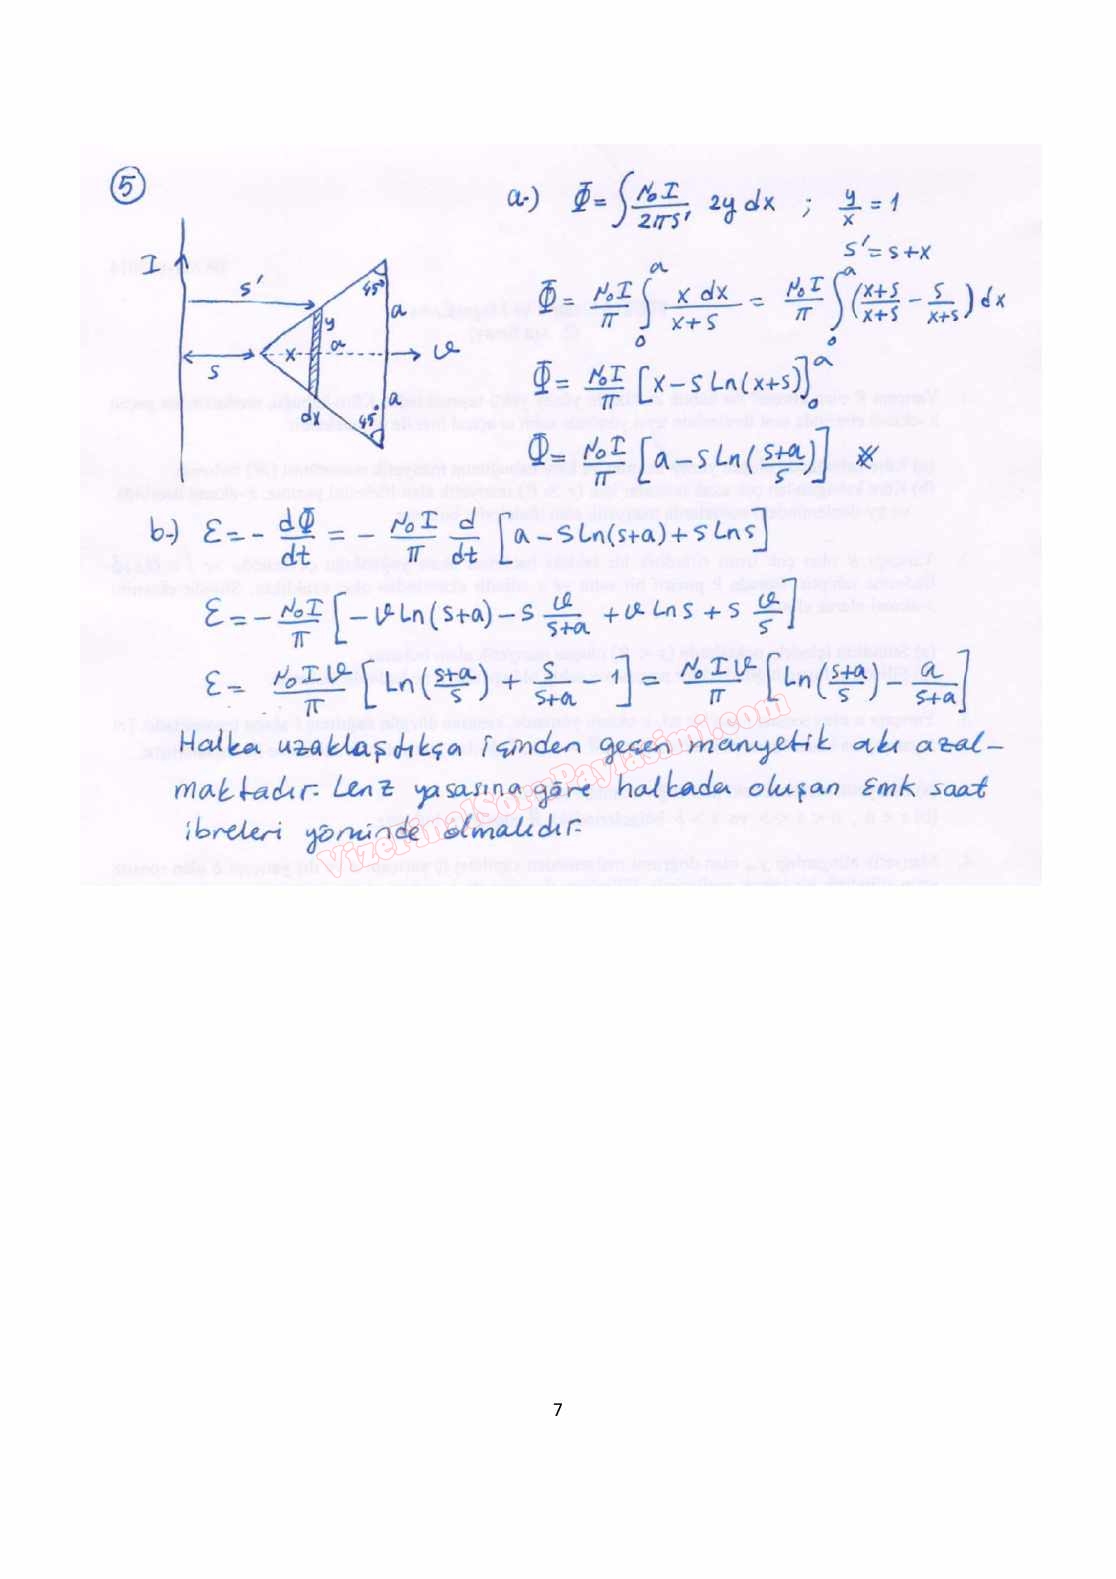 5
a-) Φ = ∫ μ₀I/2πs' 2y dx ; y/x = 1
s' = s+x
Φ = μ₀I/π ∫₀ᵃ x dx/(x+s) = μ₀I/π ∫₀ᵃ (x+s/x+s − s/x+s) dx
Φ = μ₀I/π [x − s Ln(x+s)]₀ᵃ
Φ = μ₀I/π [a − s Ln(s+a/s)]
I
s'
45°
a
y
x
a
v
s
dx
a
45°
b-) ε = − dΦ/dt = − μ₀I/π d/dt [a − s Ln(s+a) + s Ln s]
ε = − μ₀I/π [−v Ln(s+a) − s v/s+a + v Ln s + s v/s]
ε = μ₀Iv/π [Ln(s+a/s) + s/s+a − 1] = μ₀Iv/π [Ln(s+a/s) − a/s+a]
Halka uzaklaştıkça içinden geçen manyetik akı azal-
maktadır. Lenz yasasına göre halkada oluşan Emk saat
ibreleri yönünde olmalıdır.
VizeFinalSoruPaylasimi.com
7